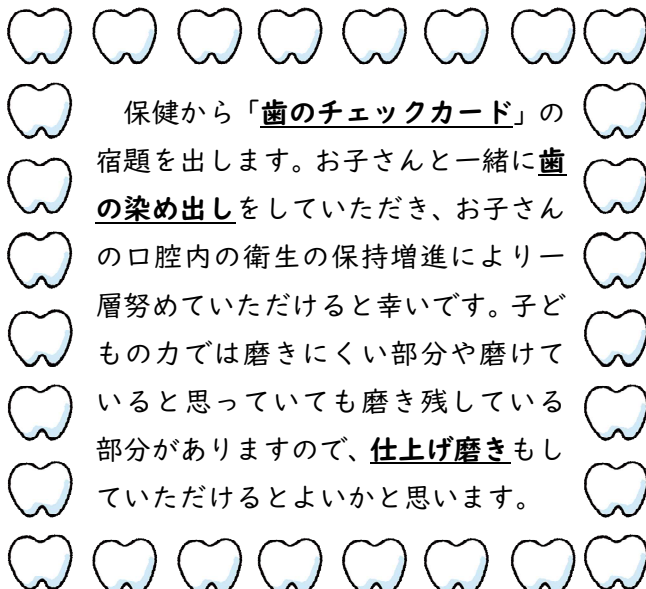 保健から「歯のチェックカード」の
宿題を出します。お子さんと一緒に歯
の染め出しをしていただき、お子さん
の口腔内の衛生の保持増進により一
層努めていただけると幸いです。子ど
もの力では磨きにくい部分や磨けて
いると思っていても磨き残している
部分がありますので、仕上げ磨きもし
ていただけるとよいかと思います。